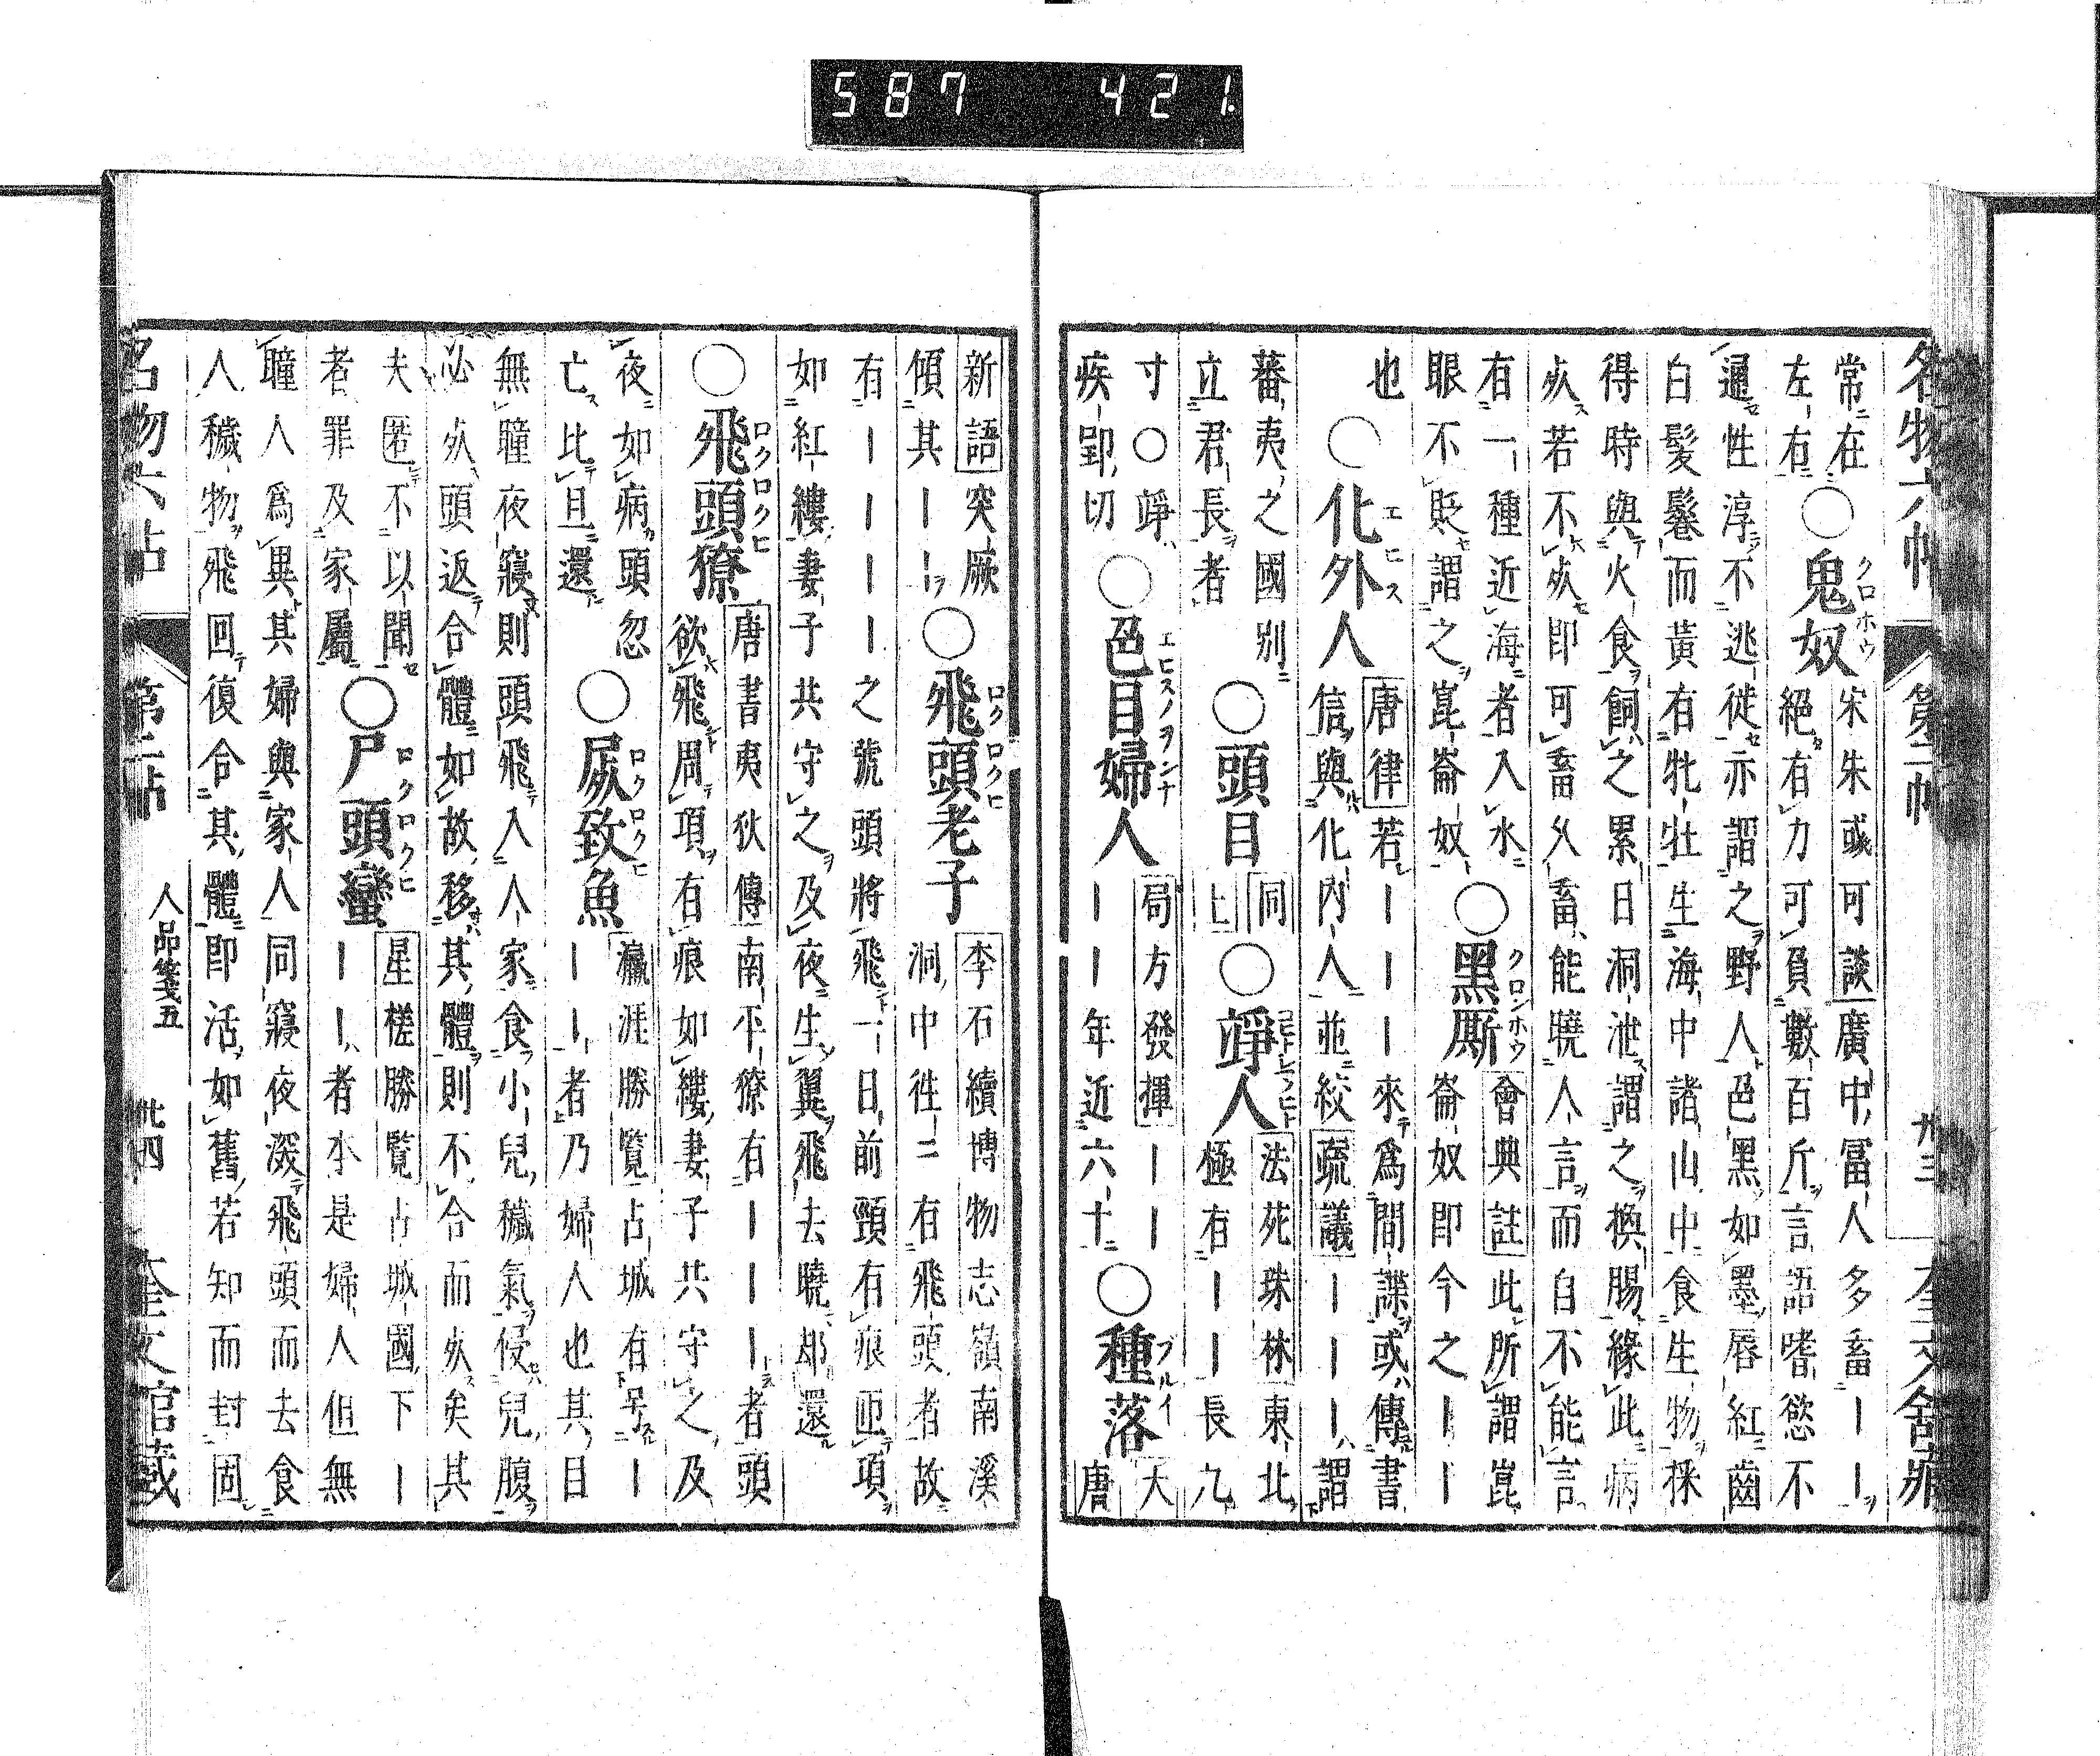 587 421
名物六帖 第二帖 廿三 奎文舘藏
常在
左右
○鬼奴 クロホウ
宋朱彧可談廣中冨人多畜｜｜
絕有力可負數百斤言語嗜慾不
通性淳不逃徙亦謂之野人色黑如墨唇紅齒
白髮鬈而黃有牝牡生海中諸山中食生物採
得時與火食飼之累日洞泄謂之換腸緣此病
死若不死即可畜久畜能曉人言而自不能言
有一種近海者入水
眼不貶謂之崑崙奴
○黑厮 クロンホウ
會典註此所謂崑
崙奴即今之｜｜
也
○化外人 エヒス
唐律若｜｜｜來爲間諜或傳書
信與化內人並絞疏議｜｜｜謂
蕃夷之國別
立君長者
○頭目
同
上
○竫人
法苑珠林東北
極有｜｜長九
寸○竫
疾郢切
○色目婦人 エヒスノヲンナ
局方發揮｜｜
｜｜年近六十
○種落 ブルイ
大
唐
新語突厥
傾其｜｜
○飛頭老子 ロクロクヒ
李石續博物志嶺南溪
洞中徃二有飛頭者故
有｜｜｜｜之號頭將飛一日前頸有痕匝項
如紅縷妻子共守之及夜生翼飛去曉却還
○飛頭獠 ロクロクヒ
唐書夷狄傳南平獠有｜｜｜者頭
欲飛周項有痕如縷妻子共守之及
夜如病頭忽
亡比旦還
○屍致魚 ロクロクヒ
瀛涯勝覽占城有号｜
｜｜者乃婦人也其目
無瞳夜寢則頭飛入人家食小兒穢氣侵兒腹
必死頭返合體如故移其體則不合而死矣其
夫匿不以聞
者罪及家屬
○尸頭蠻 ロクロクヒ
星槎勝覽占城國下｜
｜｜者本是婦人但無
瞳人爲異其婦與家人同寢夜深飛頭而去食
人穢物飛回復合其體即活如舊若知而封固
名物六帖 第二帖 人品箋五 廿四 奎文館藏